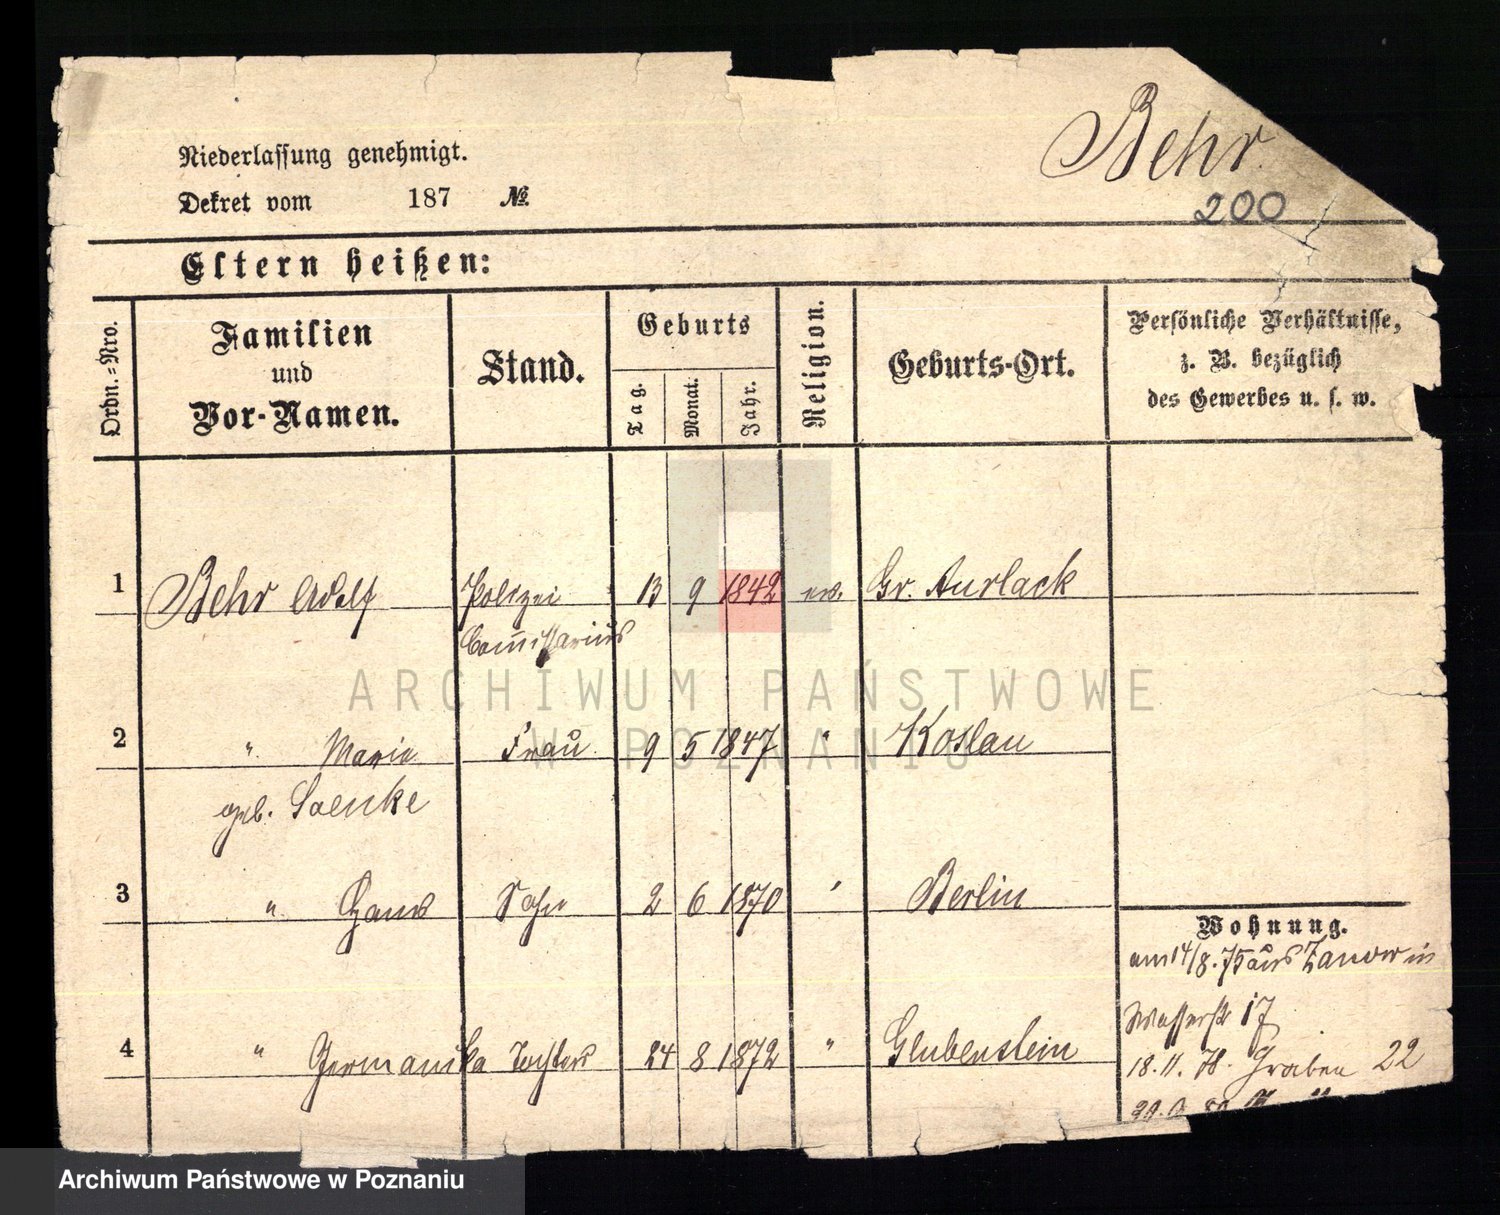 Behr
200
Niederlassung genehmigt.
Dekret vom 187 №
Eltern heißen:
Ordn.=Nro.
Familien und Vor-Namen.
Stand.
Geburts
Tag.
Monat.
Jahr.
Religion.
Geburts-Ort.
Persönliche Verhältnisse,
z. B. bezüglich
des Gewerbes u. s. w.
1 Behr Adolf Polizei 13 9 1842 ev. Gr. Aurlack
Commissarius
2 " Marie Frau 9 5 1847 " Koslau
geb. Saenke
3 " Hans Sohn 2 6 1870 ' Berlin
Wohnung.
am 14/8. 75 aus Zanow in
Wasserstr 17
4 " Germanika Tochter 24 8 1872 "
18. 11. Graben 22
ARCHIWUM PAŃSTWOWE
W POZNANIU
Archiwum Państwowe w Poznaniu